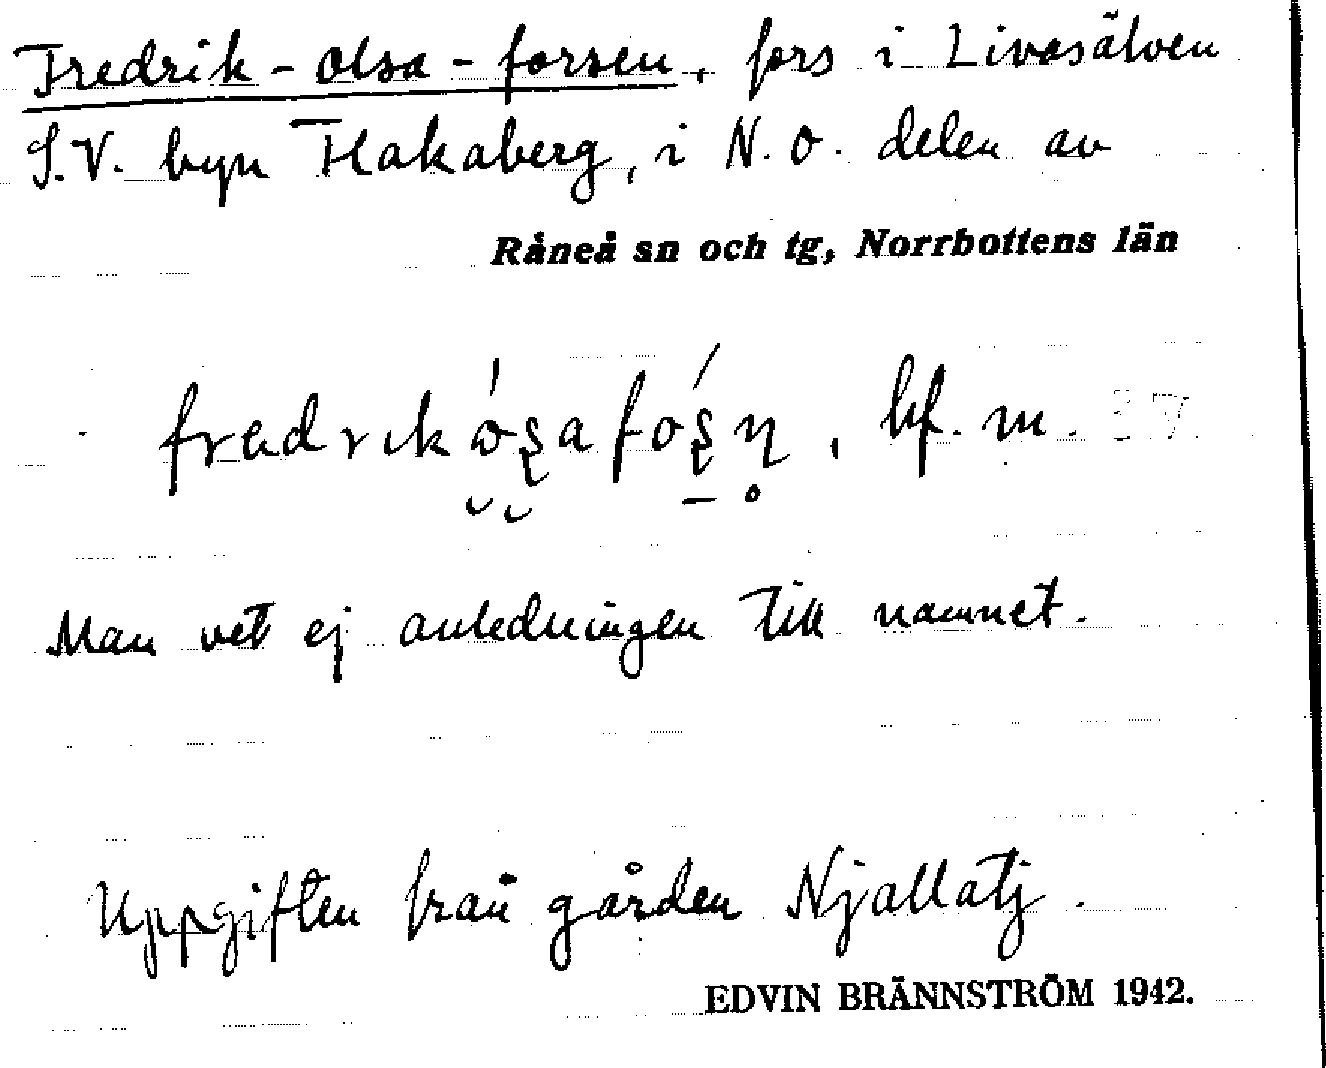 Fredrik-Olsa-forsen, fors i Livasälven
S.V. byn Flakaberg, i N.O. delen av
Råneå sn och tg, Norrbottens län
bf. m. 37
Man vet ej anledningen till namnet.
Uppgiften från gården Njallatj.
EDVIN BRÄNNSTRÖM 1942.